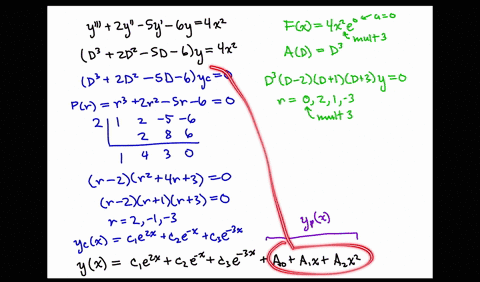 y''' + 2y'' - 5y' - 6y = 4x²
(D³ + 2D² - 5D - 6)y = 4x²
(D³ + 2D² - 5D - 6)y_c = 0
P(r) = r³ + 2r² - 5r - 6 = 0
2 | 1 2 -5 -6
2 8 6
1 4 3 0
(r-2)(r² + 4r + 3) = 0
(r-2)(r+1)(r+3) = 0
r = 2, -1, -3
y_c(x) = c₁e^{2x} + c₂e^{-x} + c₃e^{-3x}
y(x) = c₁e^{2x} + c₂e^{-x} + c₃e^{-3x} + A₀ + A₁x + A₂x²
y_p(x)
F(x) = 4x²e⁰ a=0
mult 3
A(D) = D³
D³(D-2)(D+1)(D+3)y = 0
r = 0, 2, 1, -3
mult 3